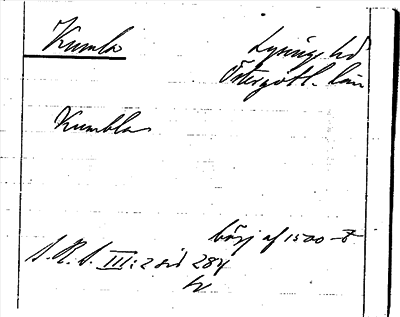 Kumla Lysings hd
Östergötl. län
Kumbla
börj af 1500-t
S.R.S. III:2 sid 284